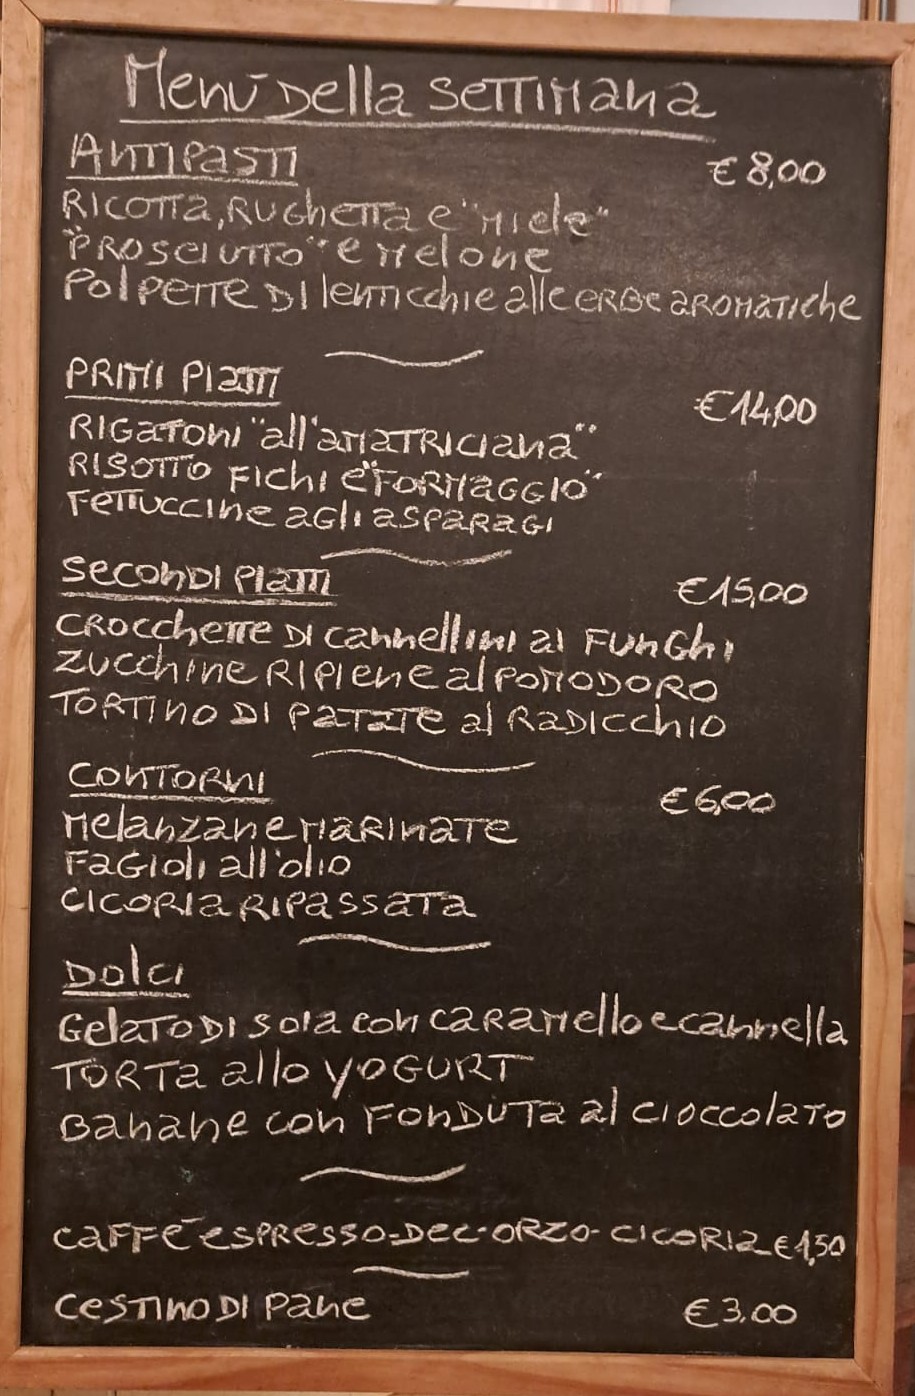 Menù Della SETTIMANA
ANTIPASTI
€ 8,00
RICOTTA, RUGHETTA E "MIELE"
"PROSCIUTTO" E MELONE
POLPETTE DI LENTICCHIE ALLE ERBE AROMATICHE
PRIMI PIATTI
€ 14,00
RIGATONI "ALL'AMATRICIANA"
RISOTTO FICHI E "FORMAGGIO"
FETTUCCINE AGLI ASPARAGI
SECONDI PIATTI
€ 15,00
CROCCHETTE DI CANNELLINI AI FUNGHI
ZUCCHINE RIPIENE AL POMODORO
TORTINO DI PATATE AL RADICCHIO
CONTORNI
€ 6,00
MELANZANE MARINATE
FAGIOLI ALL'OLIO
CICORIA RIPASSATA
DOLCI
GELATO DI SOIA CON CARAMELLO E CANNELLA
TORTA ALLO YOGURT
BANANE CON FONDUTA AL CIOCCOLATO
CAFFÈ ESPRESSO-DEC-ORZO-CICORIA € 1,50
CESTINO DI PANE € 3.00